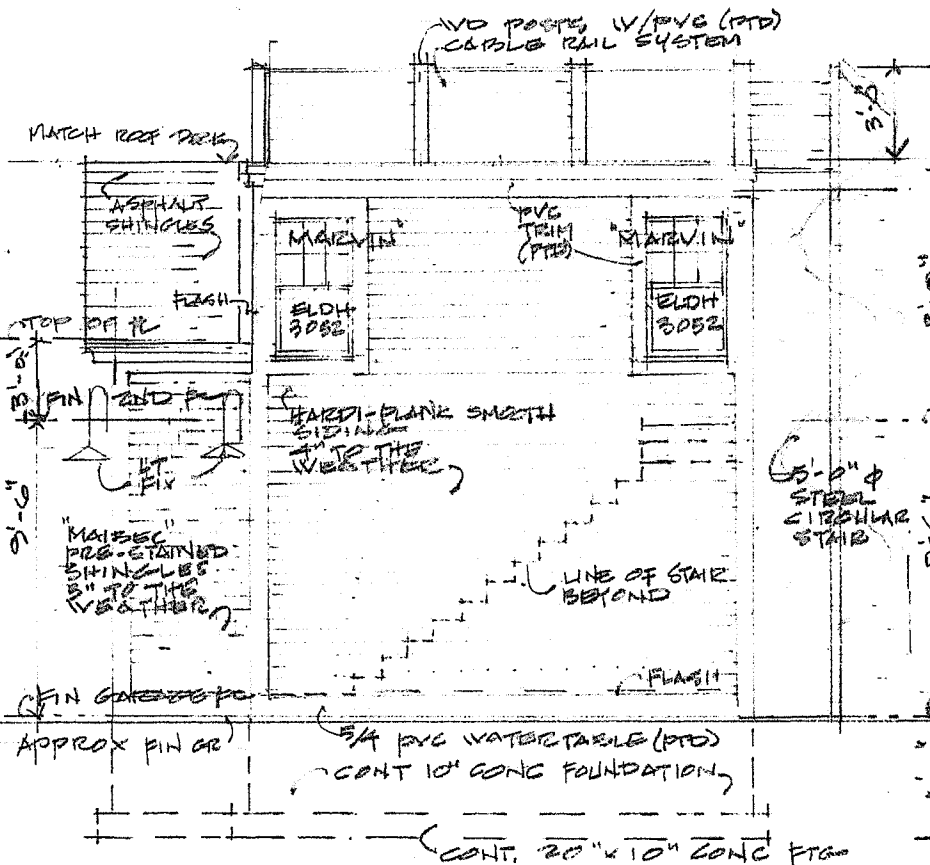 WD POSTS, W/PVC (PTD)
CABLE RAIL SYSTEM
3'-5"
MATCH ROOF DECK
ASPHALT
SHINGLES
"MARVIN"
PVC
TRIM
(PTD)
"MARVIN"
FLASH
ELDH
3052
ELDH
3052
TOP OF PL
FIN 2ND FL
HARDI-PLANK SMOOTH
SIDING
4" TO THE
WEATHER
LT
FIX
5'-0" φ
STEEL
CIRCULAR
STAIR
9'-6"
"MAIBEC"
PRE-STAINED
SHINGLES
5" TO THE
WEATHER
LINE OF STAIR
BEYOND
FLASH
FIN GARAGE FL
APPROX FIN GR
5/4 PVC WATERTABLE (PTD)
CONT 10" CONC FOUNDATION
CONT. 20" x 10" CONC FTG